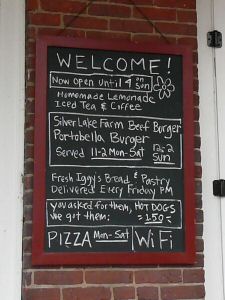 WELCOME!
Now open until 4 on Sun
Homemade Lemonade
Iced Tea & Coffee
Silver Lake Farm Beef Burger
Portobella Burger
Served 11-2 Mon-Sat 12-2 Sun
Fresh Iggy's Bread & Pastry
Delivered Every Friday PM
You asked for them, HOT DOGS
We got them: =1.50=
PIZZA Mon-Sat WiFi